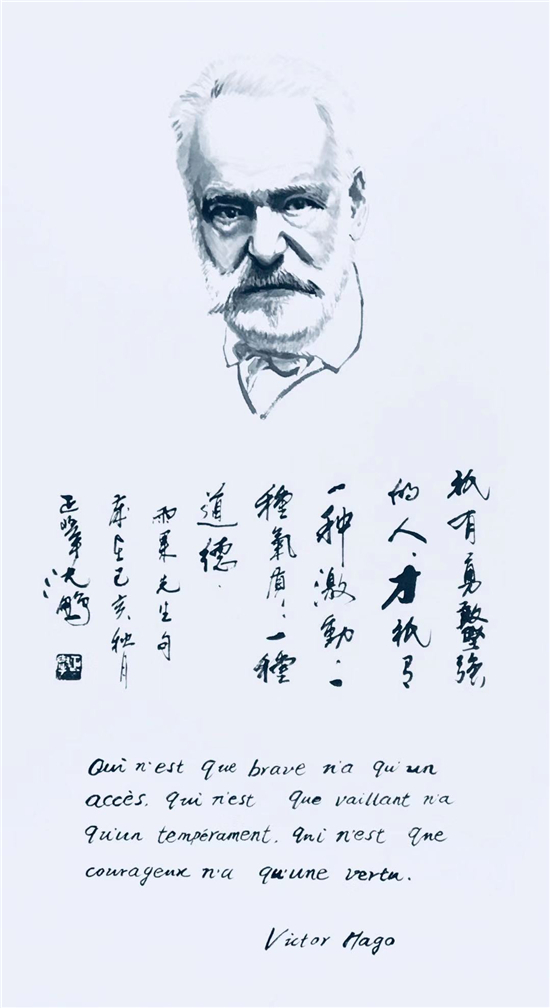 衹有勇敢堅強
的人,才衹有
一种激動,一
種氣質,一種
道德.
雨果先生句
己亥秋月
沈鵬
Qui n'est que brave n'a qu'un
accès. qui n'est que vaillant n'a
qu'un tempérament. qui n'est que
courageux n'a qu'une vertu.
Victor Hago